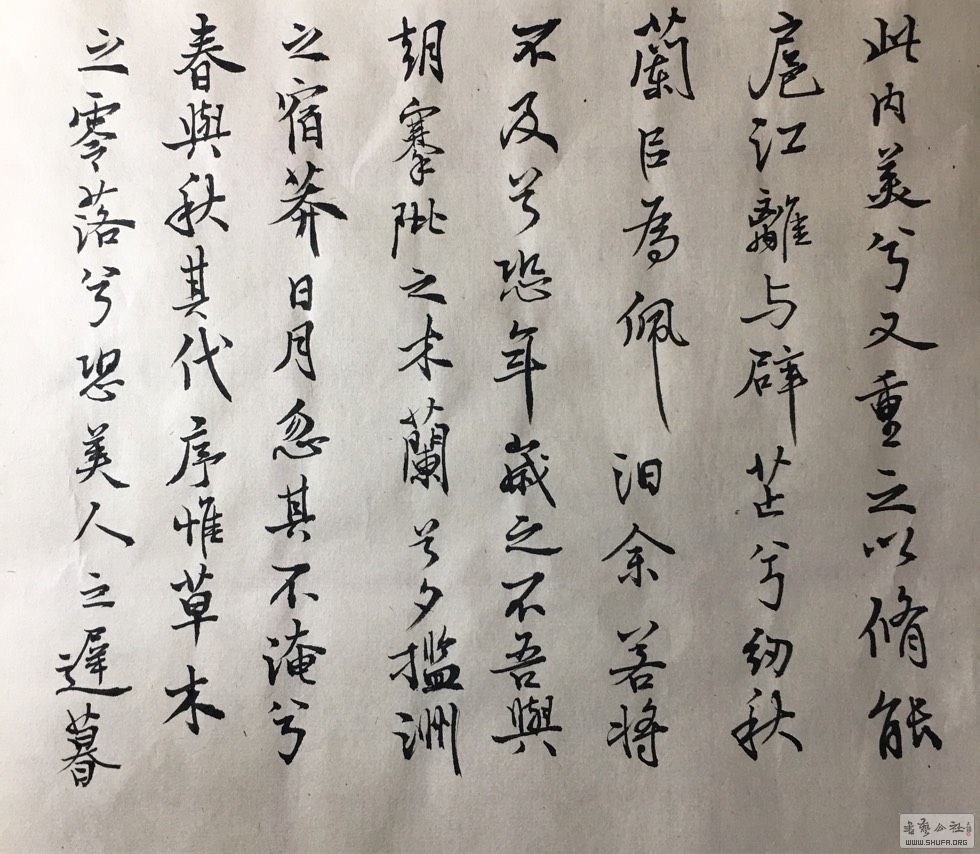 此内美兮又重之以脩能
扈江離与辟芷兮纫秋
蘭㠯為佩汩余若将
不及兮恐年歲之不吾與
朝搴阰之木蘭兮夕㩜洲
之宿莽日月忽其不淹兮
春與秋其代序惟草木
之零落兮恐美人之遲暮
書藝公社
WWW.SHUFA.ORG